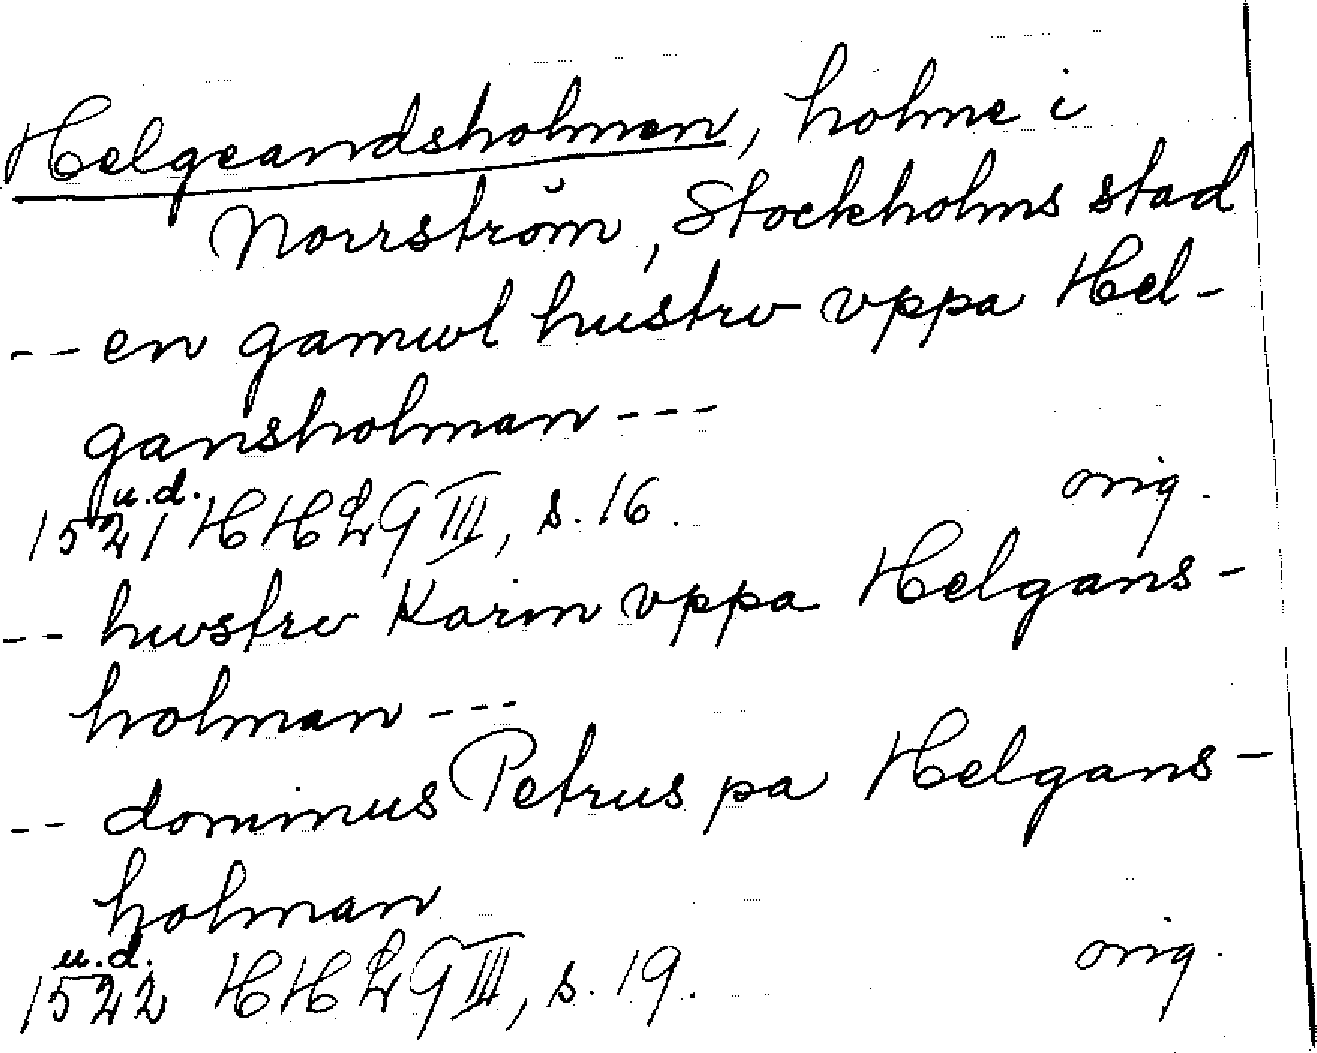 Helgeandsholmen, holme i
Norrström, Stockholms stad
-- en gamwl hustrv vppa Hel-
gansholman ---
u.d.
1521 HH 29 III, s. 16. orig.
-- hwstrv Karin vppa Helgans-
holman ---
-- dominus Petrus pa Helgans-
holman
u.d.
1522 HH 29 III, s. 19. orig.